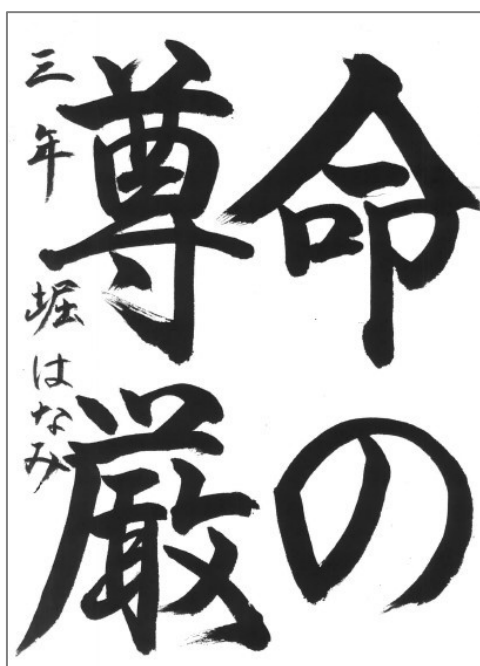 命の
尊厳
三年 堀はなみ